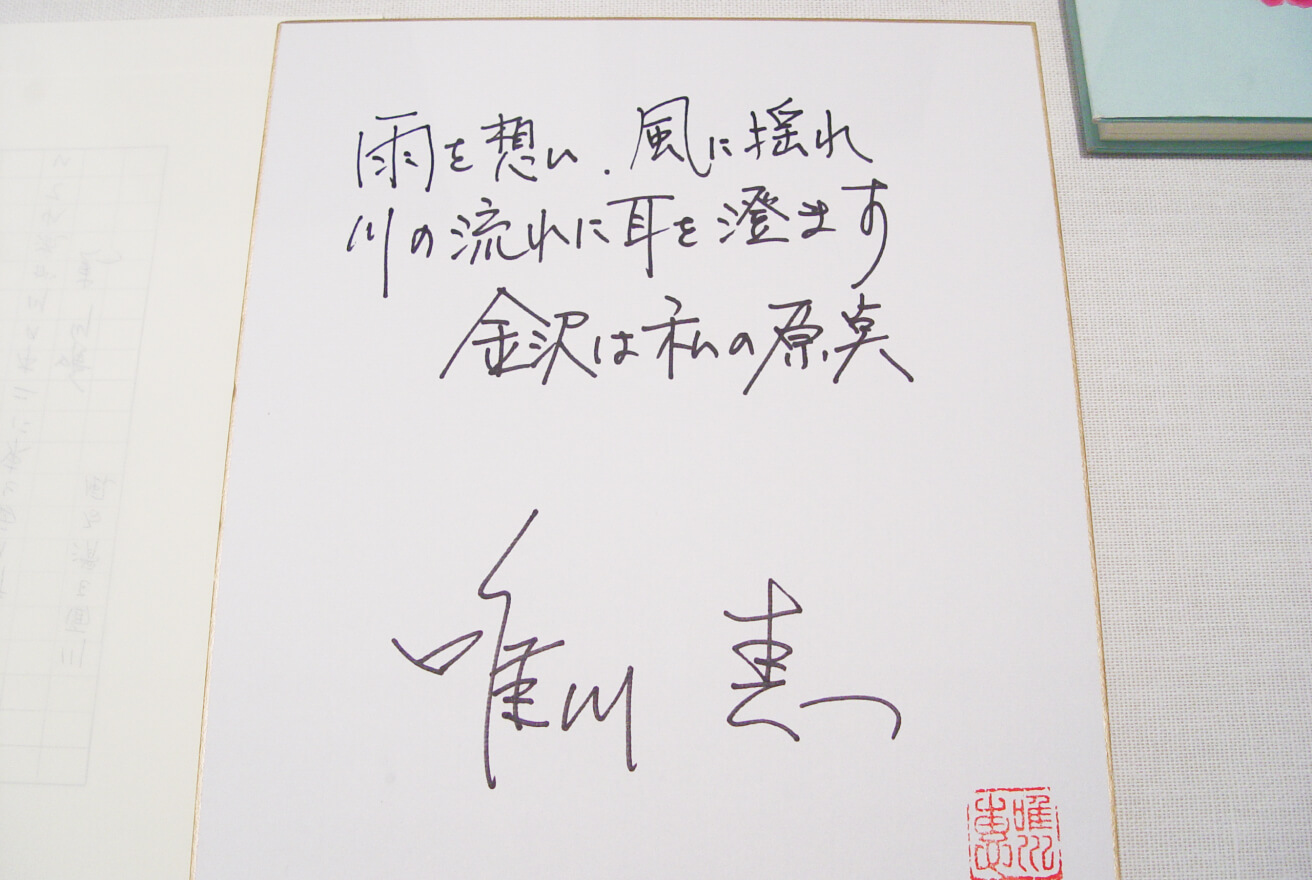 雨を想い、風に揺れ
川の流れに耳を澄ます
金沢は私の原点
唯川 恵
唯川
恵